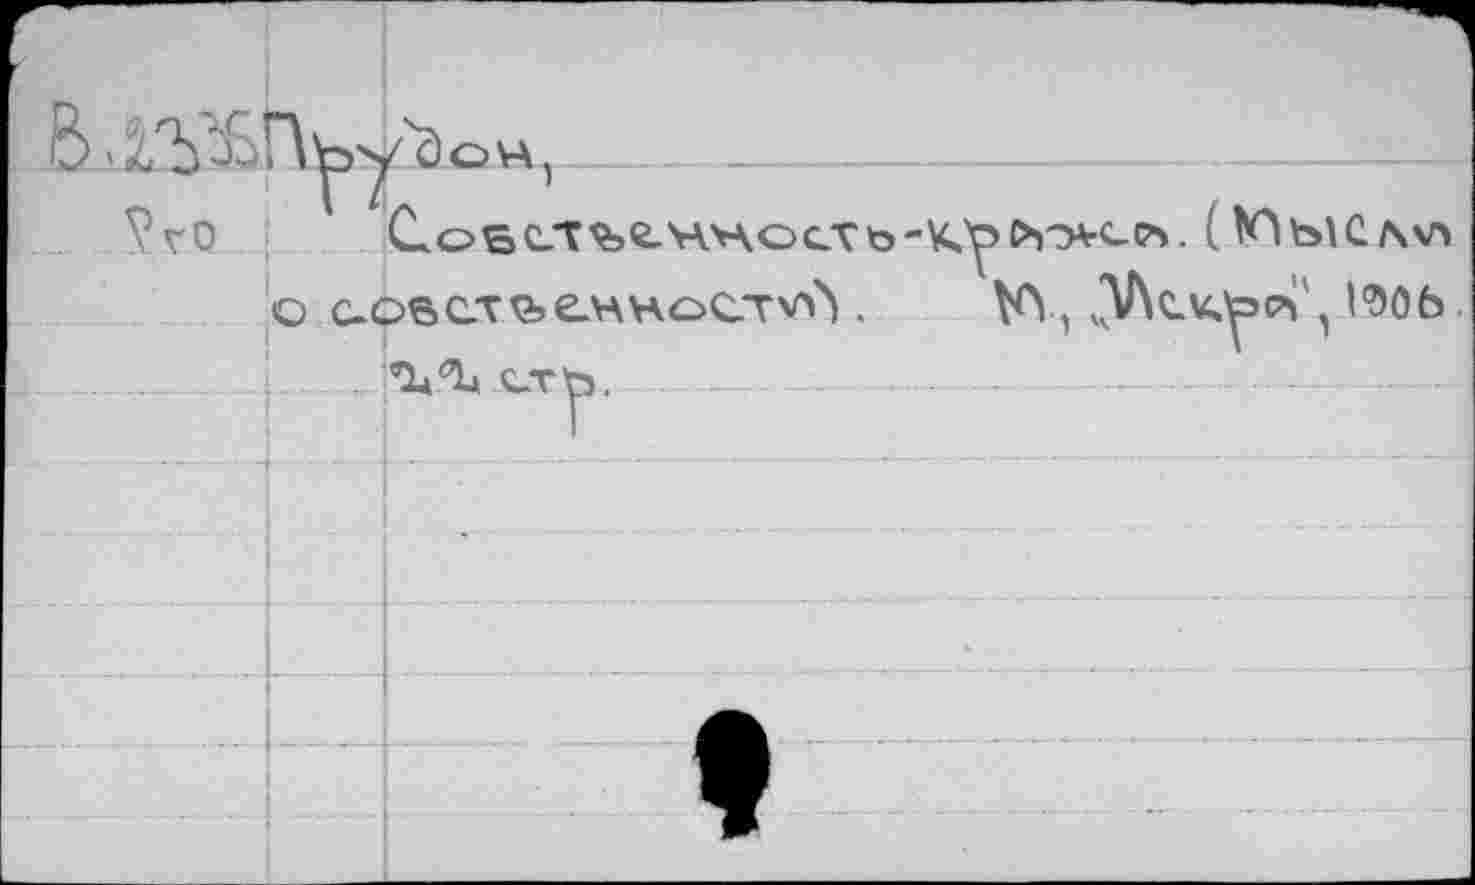 Прудон,
Собственность-кража. (Мысли
о собственности). М., „Искра", 1906.
стр.